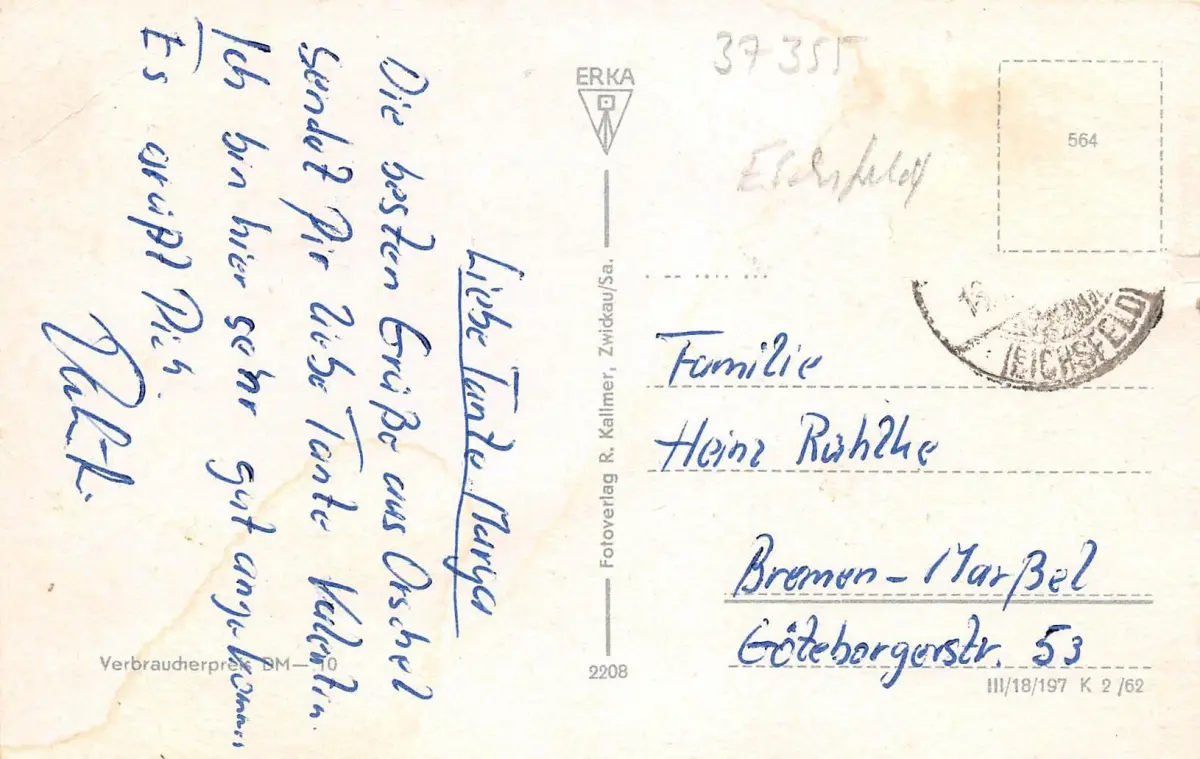 Liebe Tante Marga
Die besten Grüße aus Orschel
sendet Dir liebe Tante
Ich bin hier sehr gut angekommen
Es grüßt Dich
Verbraucherpreis DM—10
ERKA
Fotoverlag R. Kallmer, Zwickau/Sa.
2208
37355
564
(EICHSFELD)
Familie
Heinz Rühlke
Bremen – Marßel
Göteborgerstr. 53
III/18/197 K 2/62